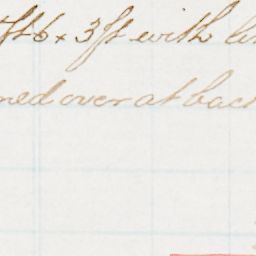 ft 6 x 3 ft with
ned over at bac